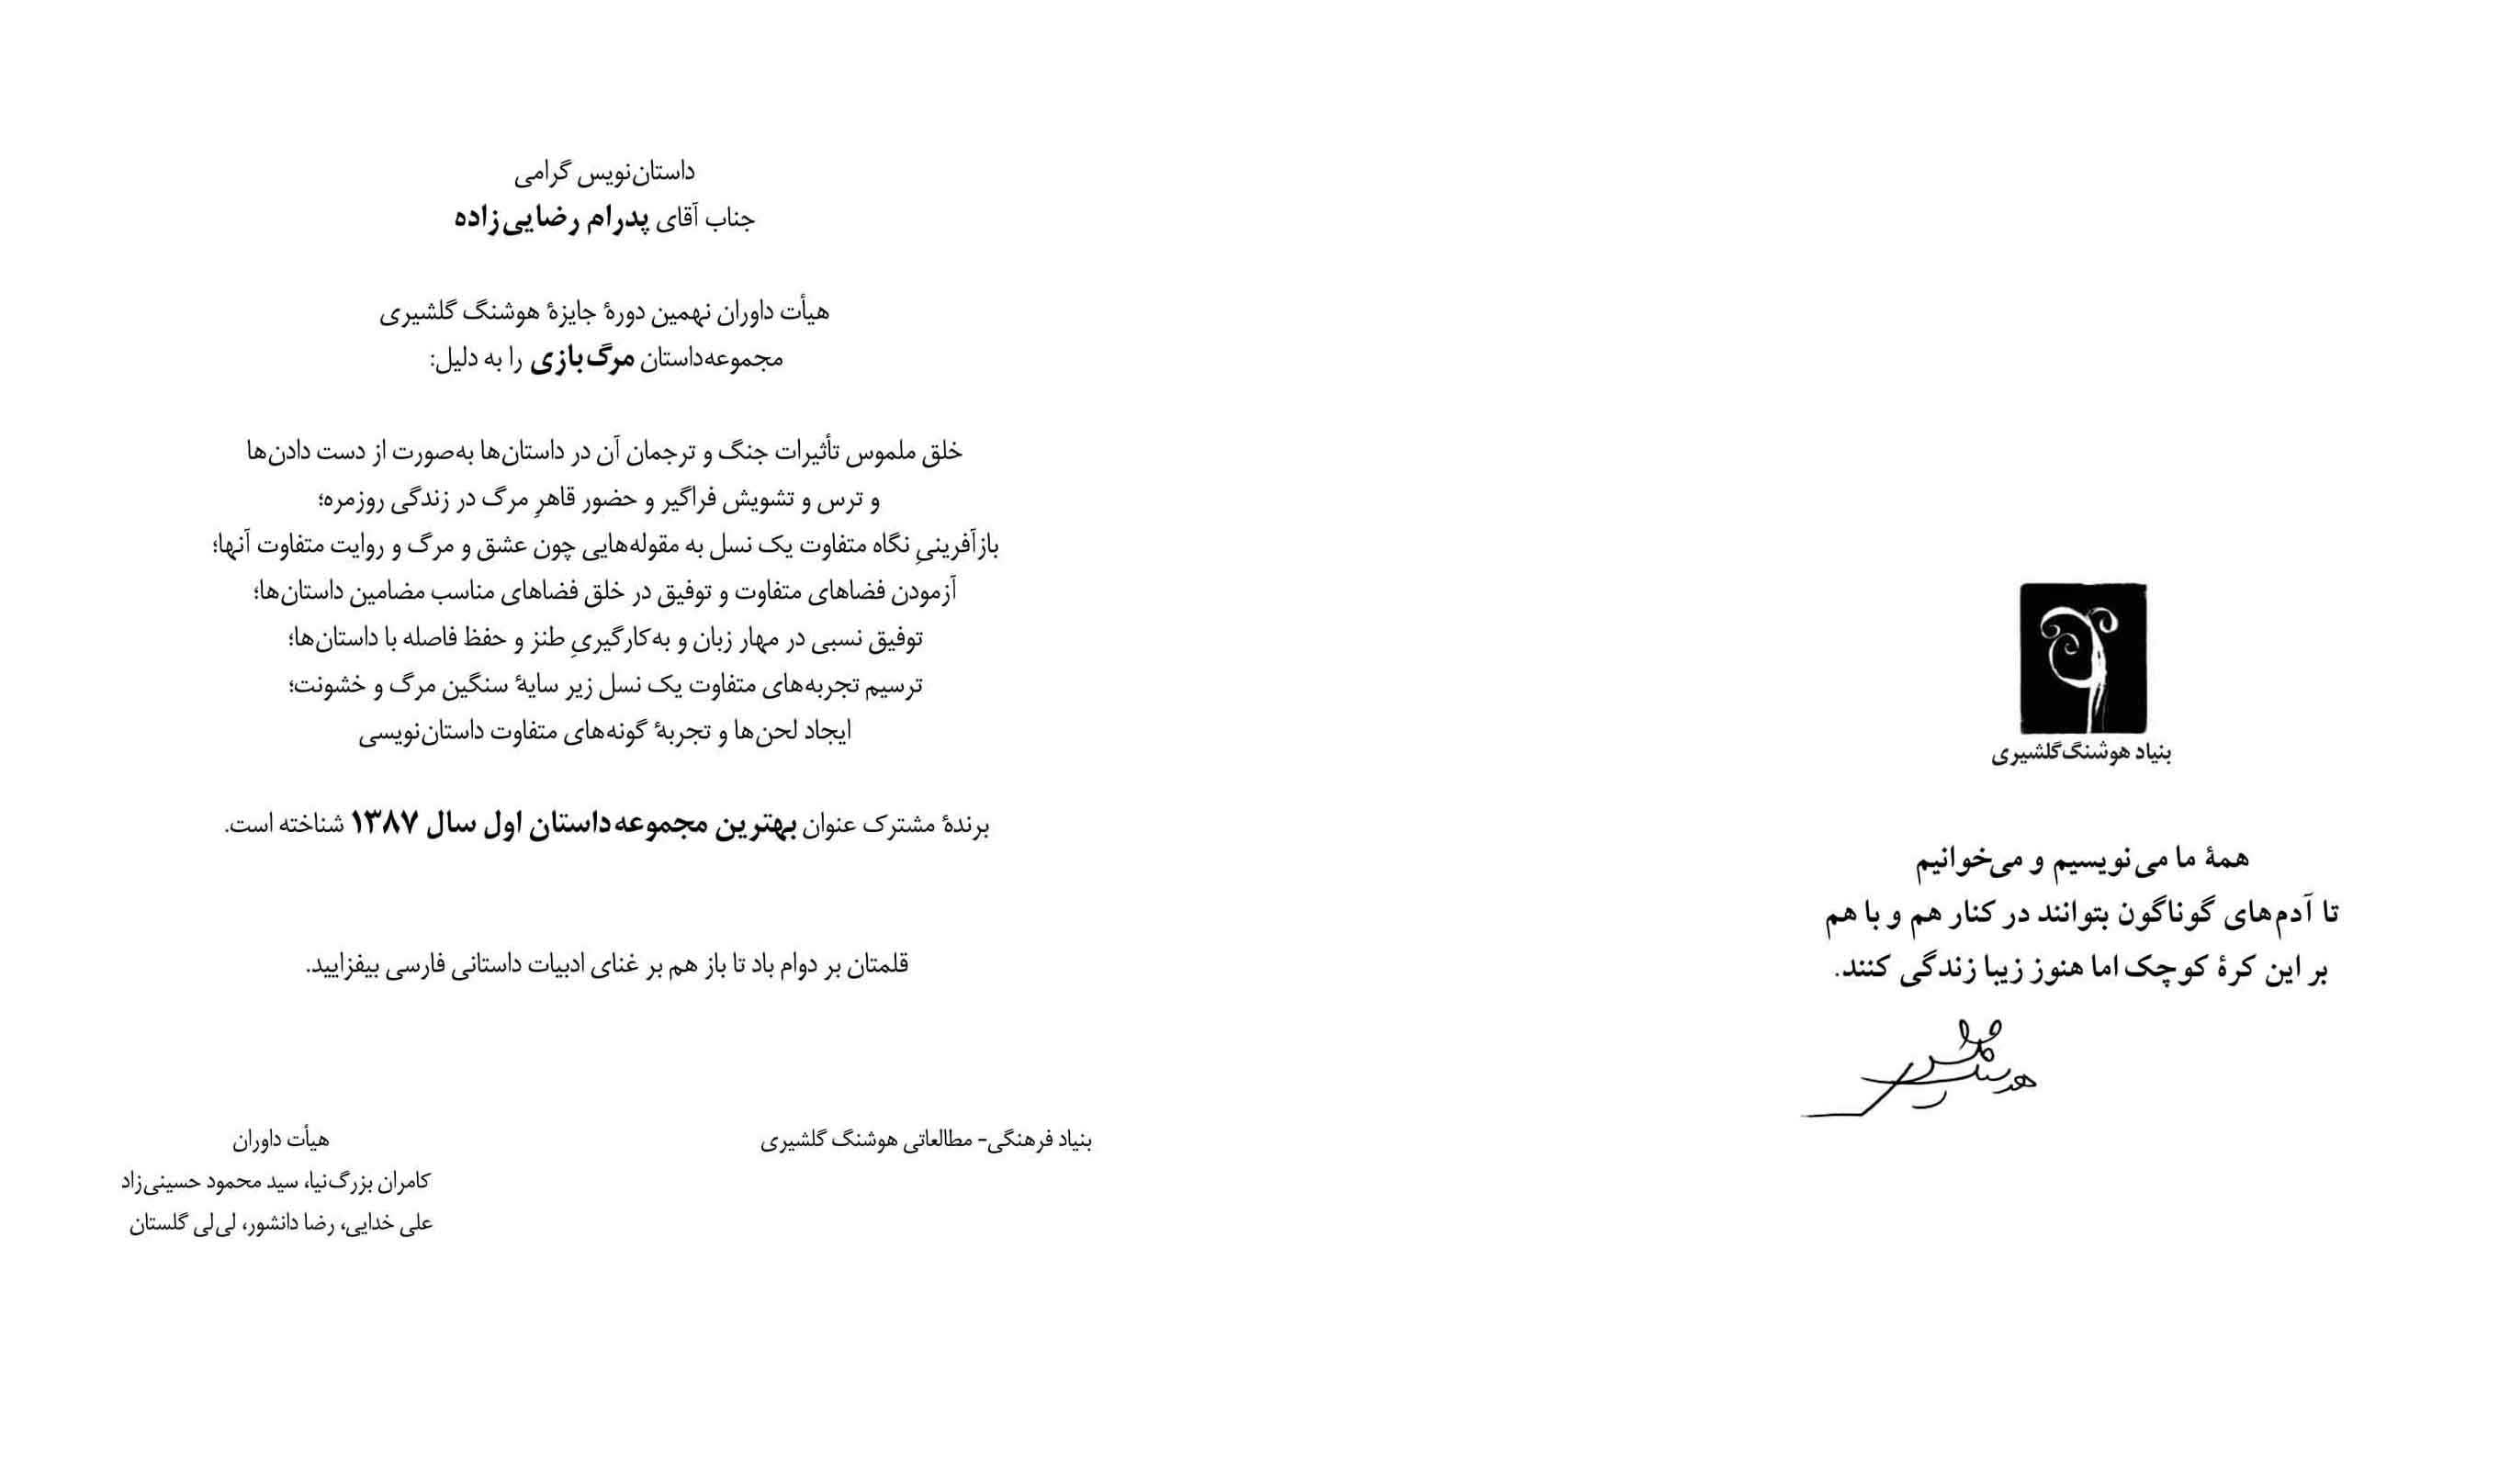 بنیاد هوشنگ گلشیری
همهٔ ما می‌نویسیم و می‌خوانیم
تا آدم‌های گوناگون بتوانند در کنار هم و با هم
بر این کرهٔ کوچک اما هنوز زیبا زندگی کنند.
هوشنگ گلشیری
داستان‌نویس گرامی
جناب آقای پدرام رضایی‌زاده
هیأت داوران نهمین دورهٔ جایزهٔ هوشنگ گلشیری
مجموعه‌داستان مرگ‌بازی را به دلیل:
خلق ملموس تأثیرات جنگ و ترجمان آن در داستان‌ها به‌صورت از دست دادن‌ها
و ترس و تشویش فراگیر و حضور قاهرِ مرگ در زندگی روزمره؛
بازآفرینیِ نگاه متفاوت یک نسل به مقوله‌هایی چون عشق و مرگ و روایت متفاوت آنها؛
آزمودن فضاهای متفاوت و توفیق در خلق فضاهای مناسب مضامین داستان‌ها؛
توفیق نسبی در مهار زبان و به‌کارگیریِ طنز و حفظ فاصله با داستان‌ها؛
ترسیم تجربه‌های متفاوت یک نسل زیر سایهٔ سنگین مرگ و خشونت؛
ایجاد لحن‌ها و تجربهٔ گونه‌های متفاوت داستان‌نویسی
برندهٔ مشترک عنوان بهترین مجموعه‌داستان اول سال ۱۳۸۷ شناخته است.
قلمتان بر دوام باد تا باز هم بر غنای ادبیات داستانی فارسی بیفزایید.
بنیاد فرهنگی- مطالعاتی هوشنگ گلشیری
هیأت داوران
کامران بزرگ‌نیا، سید محمود حسینی‌زاد
علی خدایی، رضا دانشور، لی‌لی گلستان